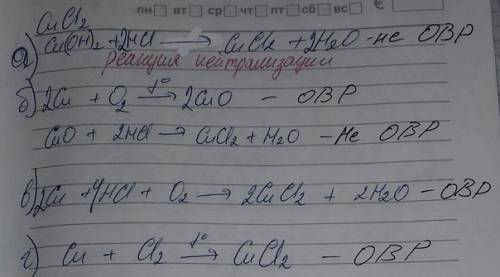 пн вт ср чт пт сб вс
CuCl₂
а) Cu(OH)₂ + 2HCl → CuCl₂ + 2H₂O - не ОВР
реакция нейтрализации
б) 2Cu + O₂ →t° 2CuO - ОВР
CuO + 2HCl → CuCl₂ + H₂O - Не ОВР
в) 2Cu + 4HCl + O₂ → 2CuCl₂ + 2H₂O - ОВР
г) Cu + Cl₂ →t° CuCl₂ - ОВР